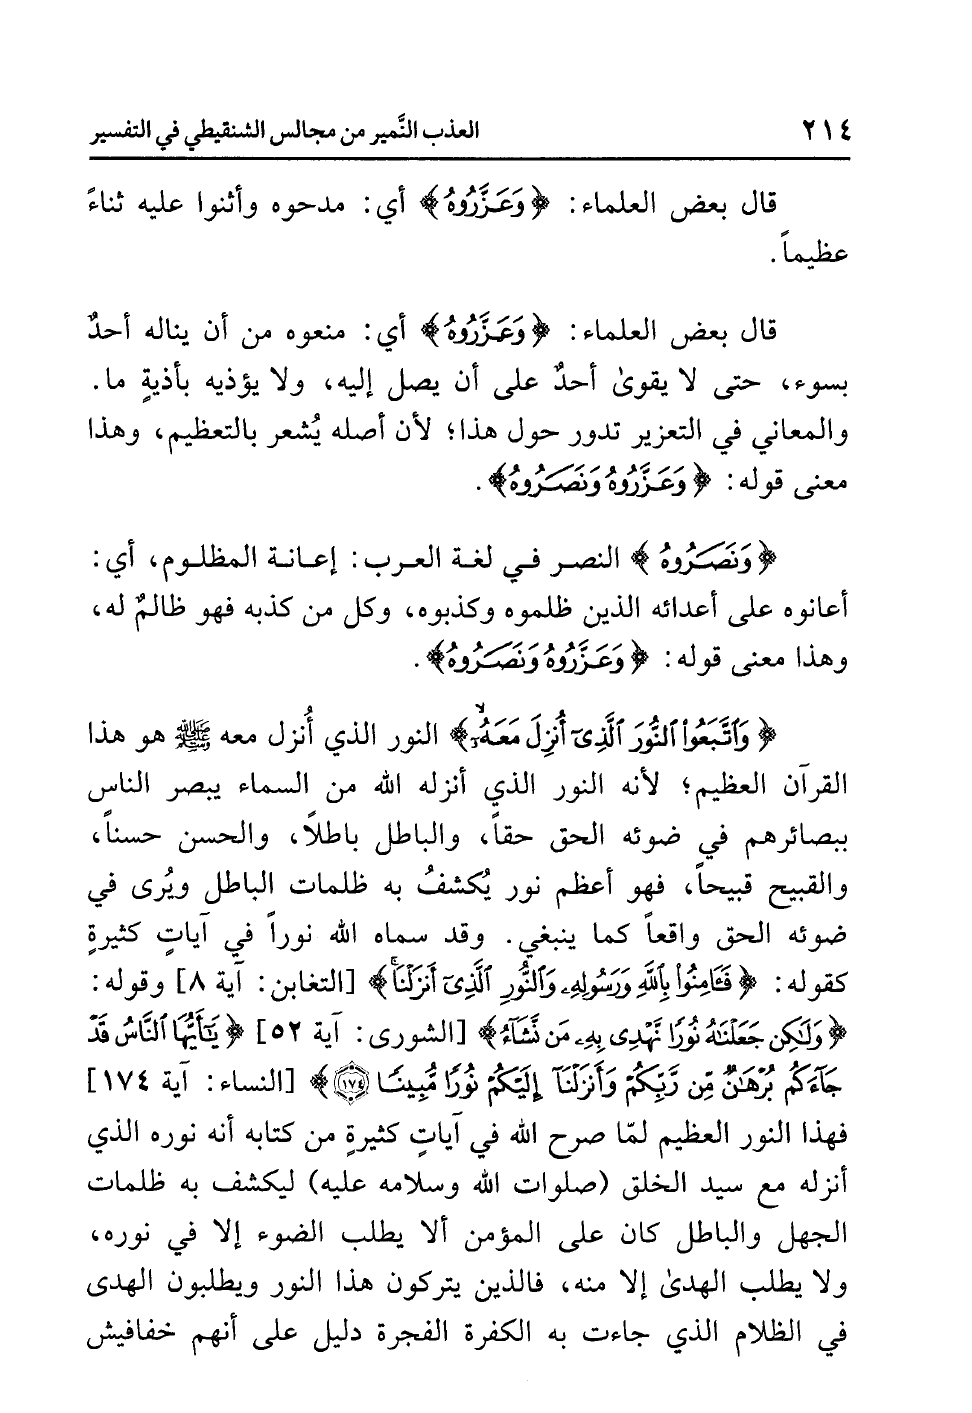 ٢١٤ العذب النَّمير من مجالس الشنقيطي في التفسير
قال بعض العلماء: ﴿وَعَزَّرُوهُ﴾ أي: مدحوه وأثنوا عليه ثناءً
عظيماً.
قال بعض العلماء: ﴿وَعَزَّرُوهُ﴾ أي: منعوه من أن يناله أحدٌ
بسوء، حتى لا يقوىٰ أحدٌ على أن يصل إليه، ولا يؤذيه بأذيةٍ ما.
والمعاني في التعزير تدور حول هذا؛ لأن أصله يُشعر بالتعظيم، وهذا
معنى قوله: ﴿وَعَزَّرُوهُ وَنَصَرُوهُ﴾.
﴿وَنَصَرُوهُ﴾ النصر في لغة العرب: إعانة المظلوم، أي:
أعانوه على أعدائه الذين ظلموه وكذبوه، وكل من كذبه فهو ظالمٌ له،
وهذا معنى قوله: ﴿وَعَزَّرُوهُ وَنَصَرُوهُ﴾.
﴿وَٱتَّبَعُوا۟ ٱلنُّورَ ٱلَّذِىٓ أُنزِلَ مَعَهُۥٓ ۙ﴾ النور الذي أُنزل معه ﷺ هو هذا
القرآن العظيم؛ لأنه النور الذي أنزله الله من السماء يبصر الناس
ببصائرهم في ضوئه الحق حقاً، والباطل باطلاً، والحسن حسناً،
والقبيح قبيحاً، فهو أعظم نور يُكشفُ به ظلمات الباطل ويُرى في
ضوئه الحق واقعاً كما ينبغي. وقد سماه الله نوراً في آياتٍ كثيرةٍ
كقوله: ﴿فَـَٔامِنُوا۟ بِٱللَّهِ وَرَسُولِهِۦ وَٱلنُّورِ ٱلَّذِىٓ أَنزَلْنَا ۚ﴾ [التغابن: آية ٨] وقوله:
﴿وَلَـٰكِن جَعَلْنَـٰهُ نُورًا نَّهْدِى بِهِۦ مَن نَّشَآءُ﴾ [الشورى: آية ٥٢] ﴿يَـٰٓأَيُّهَا ٱلنَّاسُ قَدْ
جَآءَكُم بُرْهَـٰنٌ مِّن رَّبِّكُمْ وَأَنزَلْنَآ إِلَيْكُمْ نُورًا مُّبِينًا ۝١٧٤﴾ [النساء: آية ١٧٤]
فهذا النور العظيم لمّا صرح الله في آياتٍ كثيرةٍ من كتابه أنه نوره الذي
أنزله مع سيد الخلق (صلوات الله وسلامه عليه) ليكشف به ظلمات
الجهل والباطل كان على المؤمن ألا يطلب الضوء إلا في نوره،
ولا يطلب الهدىٰ إلا منه، فالذين يتركون هذا النور ويطلبون الهدى
في الظلام الذي جاءت به الكفرة الفجرة دليل على أنهم خفافيش